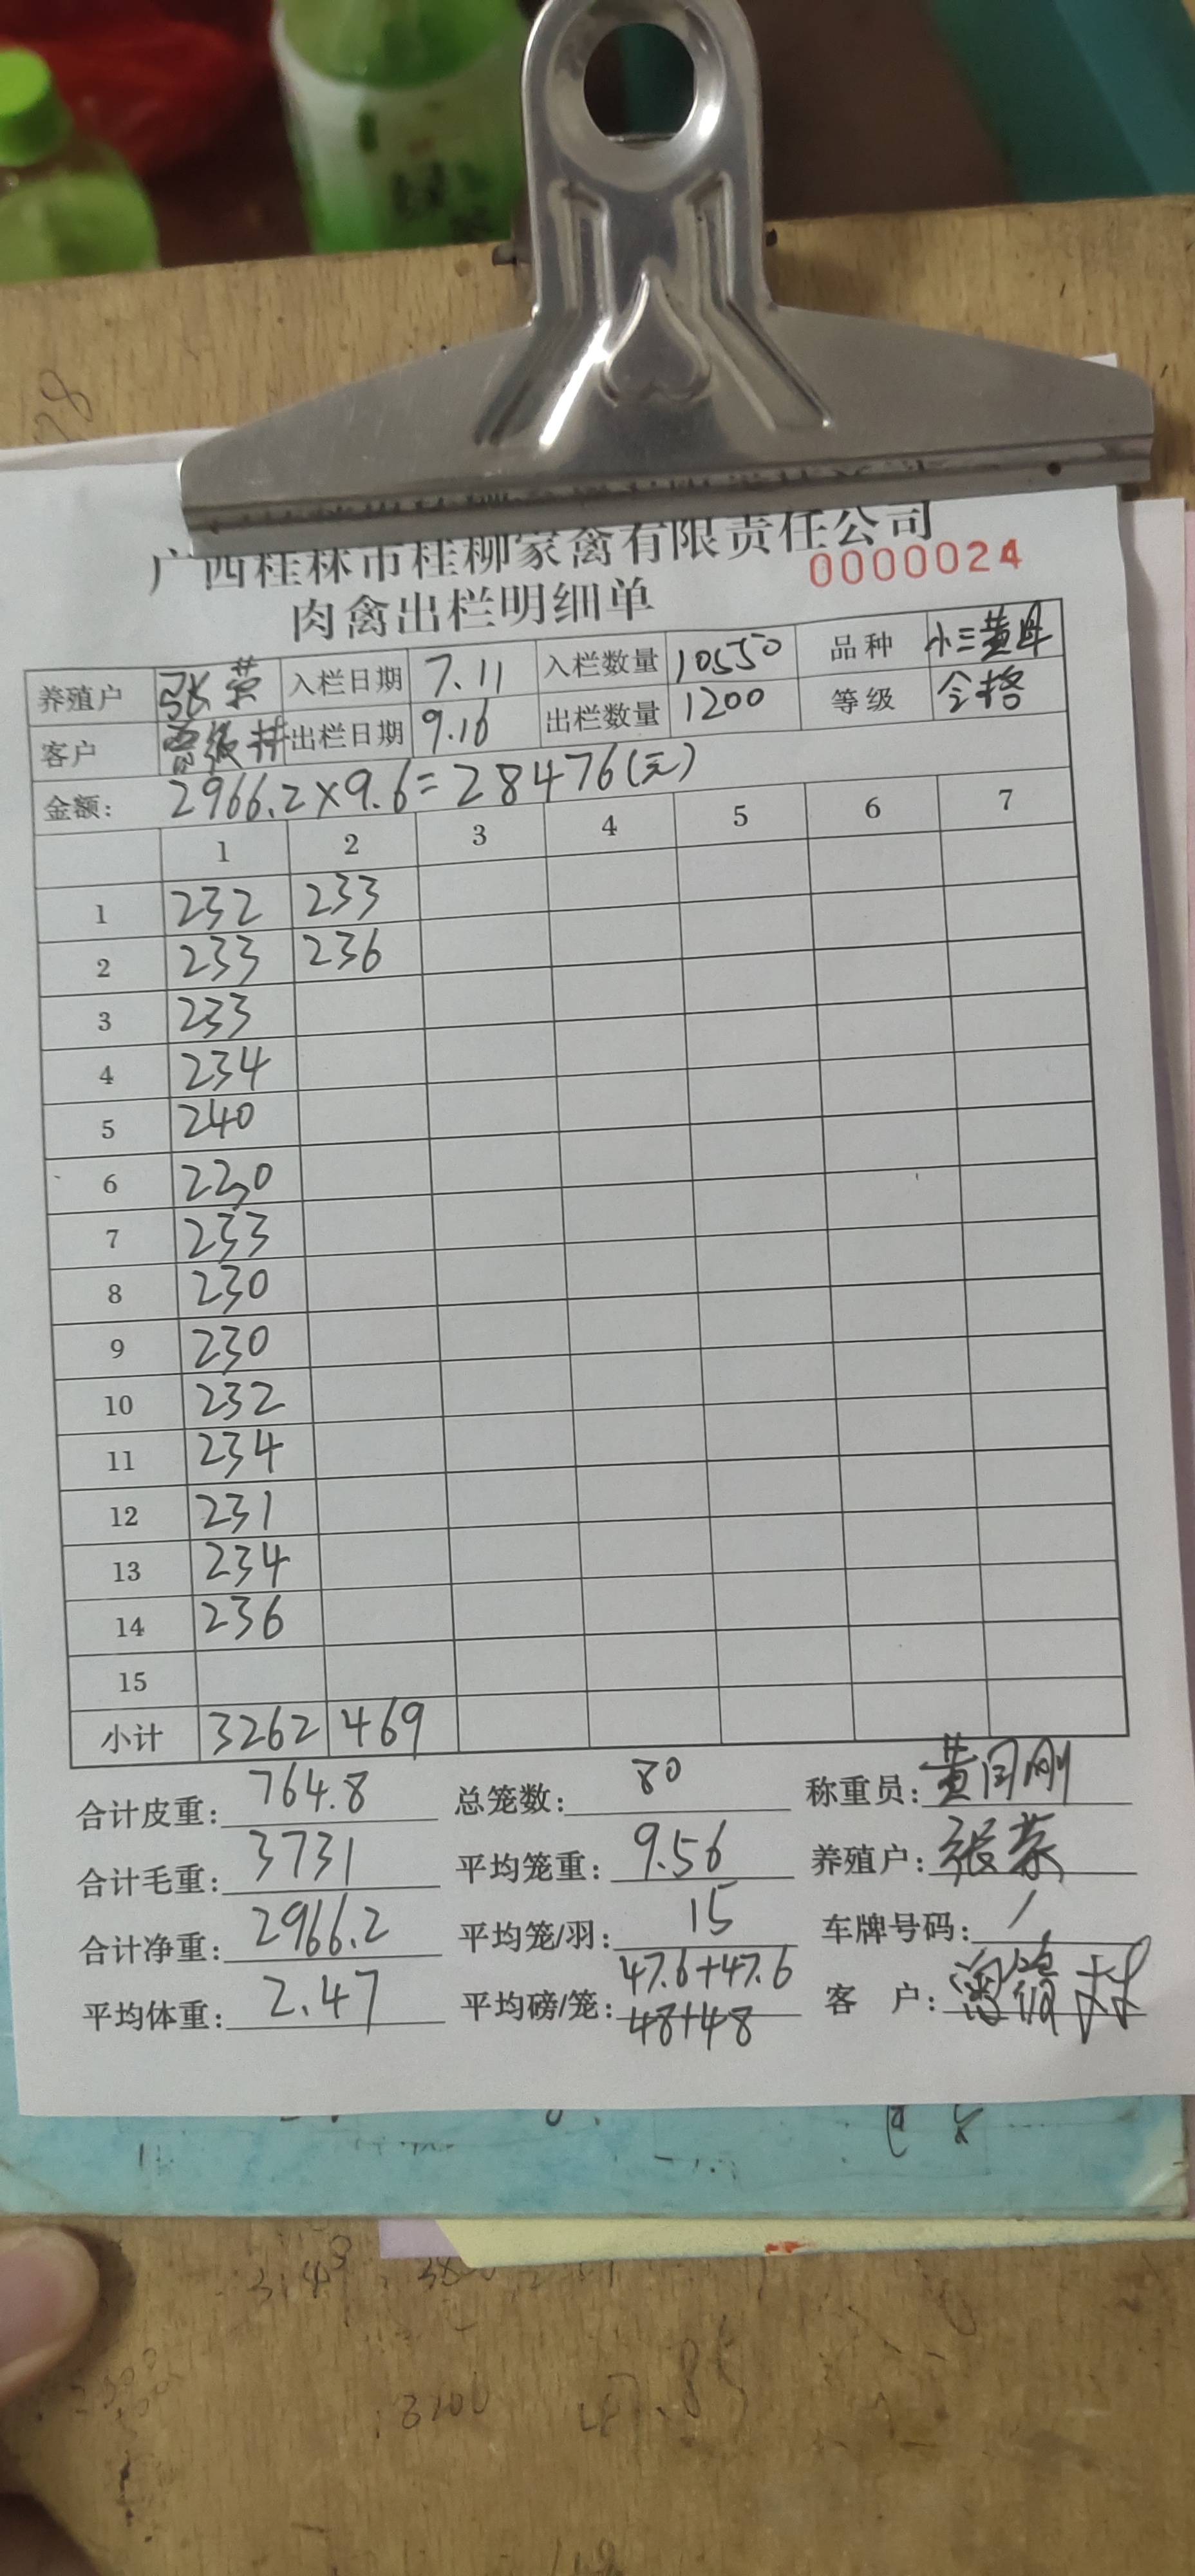 广西桂林市桂柳家禽有限责任公司
肉禽出栏明细单 0000024
养殖户 张荣 入栏日期 7.11 入栏数量 10550 品种 小三黄母
客户 出栏日期 9.16 出栏数量 1200 等级 合格
金额: 2966.2×9.6=28476(元)
1 2 3 4 5 6 7
1 232 233
2 233 236
3 233
4 234
5 240
6 230
7 233
8 230
9 230
10 232
11 234
12 231
13 234
14 236
15
小计 3262 469
合计皮重: 764.8 总笼数: 80 称重员: 黄国刚
合计毛重: 3731 平均笼重: 9.56 养殖户: 张荣
合计净重: 2966.2 平均笼/羽: 15 车牌号码: /
平均体重: 2.47 平均磅/笼: 47.6+47.6 客 户:
48+48